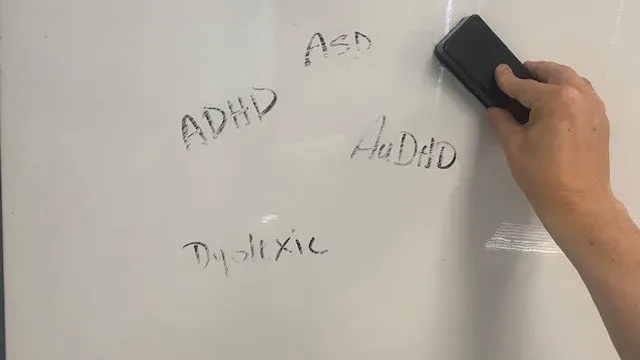 ASD
ADHD
AuDHD
Dyslexic